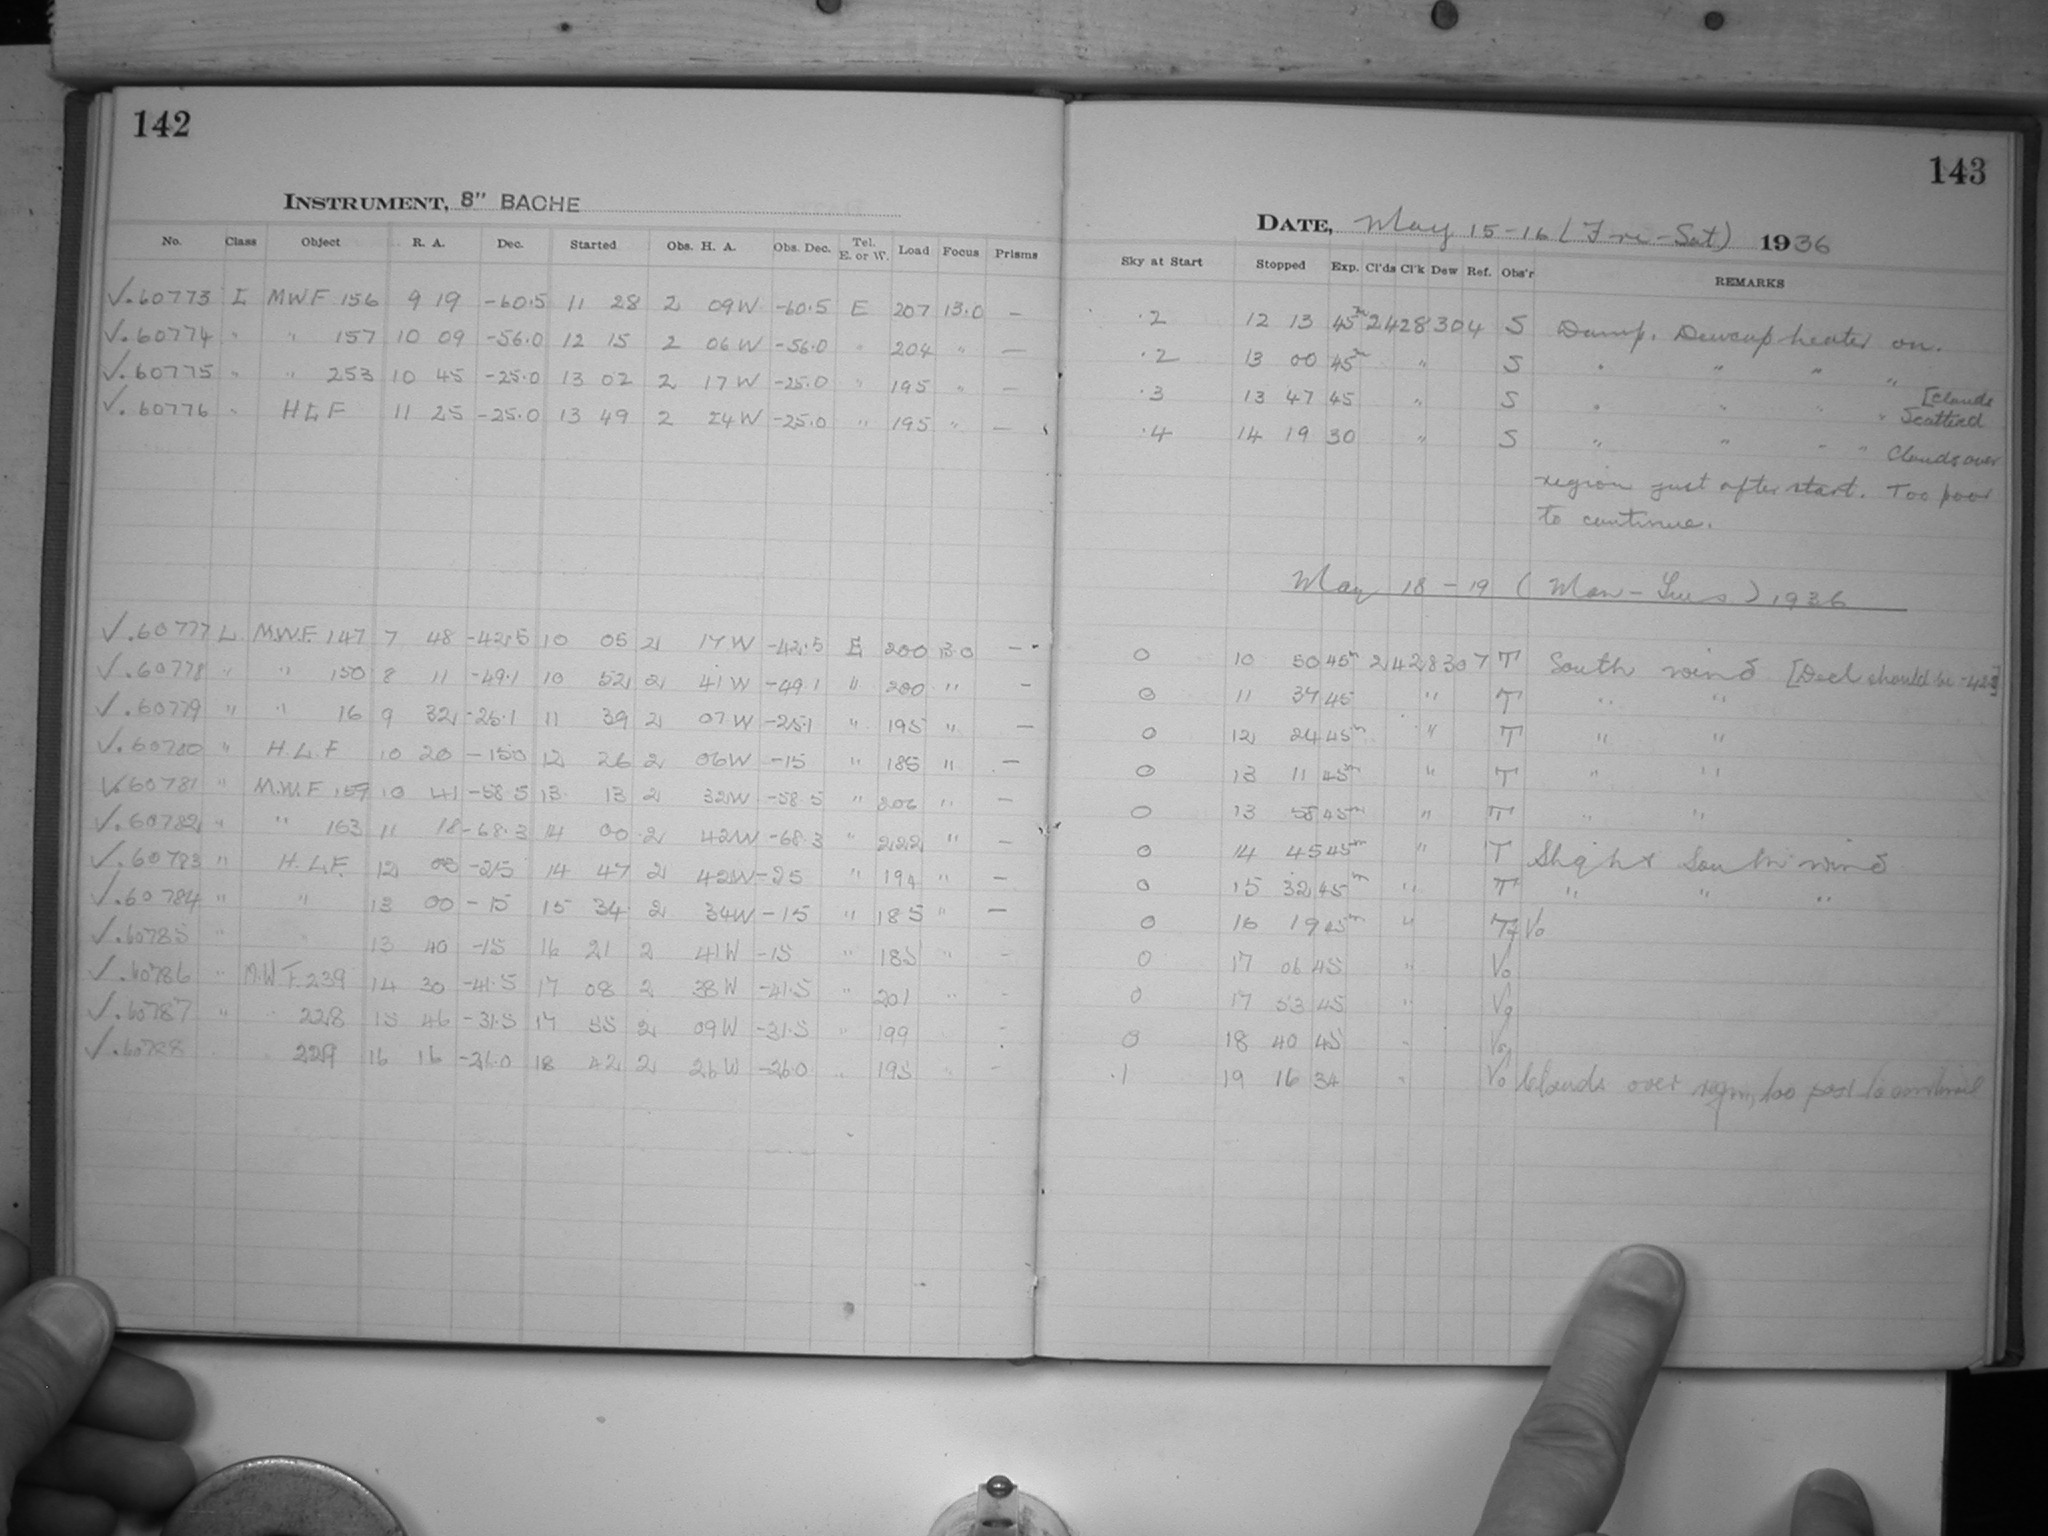 142
INSTRUMENT, 8" BACHE
No. Class Object R. A. Dec. Started Obs. H. A. Obs. Dec. Tel. E. or W. Load Focus Prisms
√.60773 L MWF 156 9 19 -60.5 11 28 2 09W -60.5 E 207 13.0 —
√.60774 " " 157 10 09 -56.0 12 15 2 06W -56.0 " 204 " —
√.60775 " " 253 10 45 -25.0 13 02 2 17W -25.0 " 195 " —
√.60776 " HLF 11 25 -25.0 13 49 2 24W -25.0 " 195 " —
√.60777 L M.W.F. 147 7 48 -42.5 10 05 2 17W -42.5 E 200 13.0 —
√.60778 " " 150 8 11 -49.1 10 52 2 41W -49.1 " 200 " —
√.60779 " " 16 9 32 -25.1 11 39 2 07W -25.1 " 195 " —
√.60780 " H.L.F 10 20 -15.0 12 26 2 06W -15 " 185 " —
√.60781 " M.W.F 159 10 41 -58.5 13 13 2 32W -58.5 " 206 " —
√.60782 " " 163 11 18 -68.3 14 00 2 42W -68.3 " 222 " —
√.60783 " H.L.F. 12 05 -25 14 47 2 42W -25 " 194 " —
√.60784 " " 13 00 -15 15 34 2 34W -15 " 185 " —
√.60785 " " 13 40 -15 16 21 2 41W -15 " 185 " -
√.60786 " M.W.F. 239 14 30 -41.5 17 08 2 38W -41.5 " 201 " -
√.60787 " " 228 15 46 -31.5 17 55 2 09W -31.5 " 199 -
√.60788 229 16 16 -26.0 18 42 2 26W -26.0 " 195 " -
143
DATE, May 15-16 (Fri-Sat) 1936
Sky at Start Stopped Exp. Cl'ds Cl'k Dew Ref. Obs'r REMARKS
.2 12 13 45m 2428304 S Damp. Dewcap heater on.
.2 13 00 45m " S " " " "
.3 13 47 45 " S " " " " [Clouds
Scattered
.4 14 19 30 " S " " " " Clouds over
region just after start. Too poor
to continue.
May 18-19 (Mon-Tues) 1936
0 10 50 45m 2428307 T South wind [Decl should be
0 11 37 45 " T " "
0 12 24 45m " T " "
0 13 11 45m " T " "
0 13 58 45m " T " "
0 14 45 45m " T Slight South wind
0 15 32 45m " T " " "
0 16 19 45m "
0 17 06 45 "
0 17 53 45 "
0 18 40 45 "
.1 19 16 34 " Clouds over region, too poor to continue